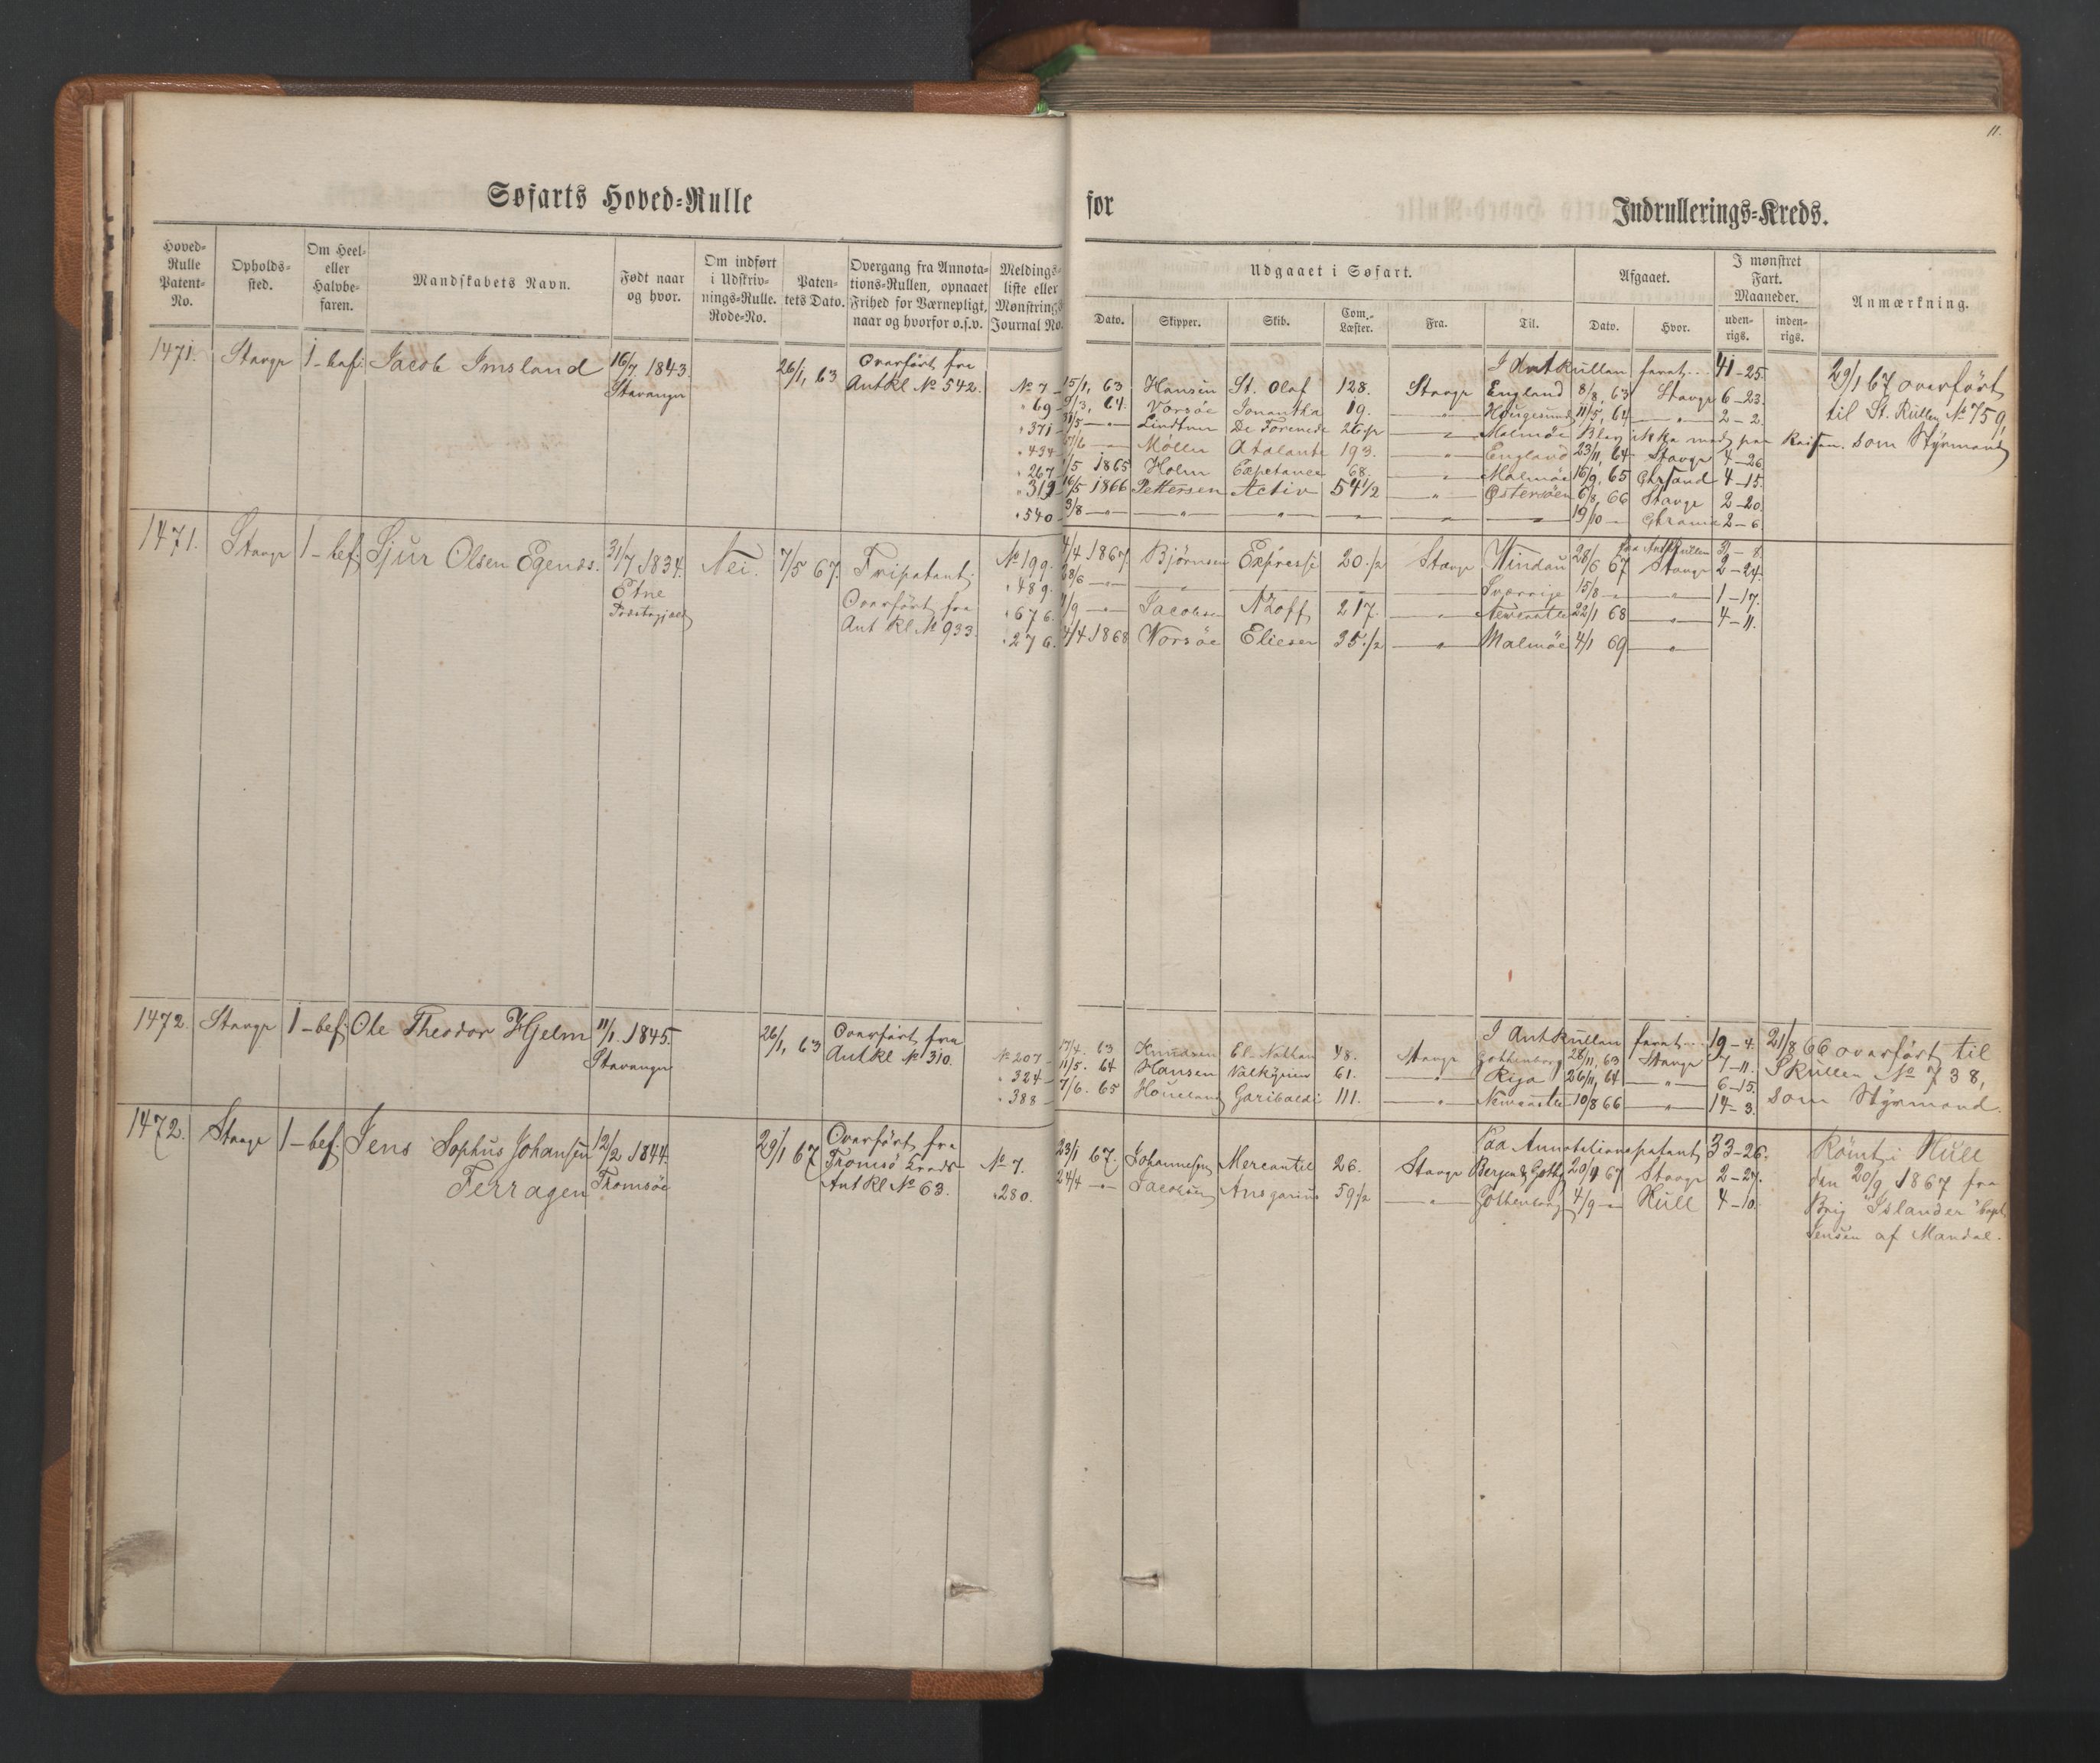 11.
Søfarts Hoved-Rulle
for
Indrullerings-Kreds.
Hoved-Rulle Patent-No.
Opholds-sted.
Om Heel- eller Halvbe-faren.
Mandskabets Navn.
Født naar og hvor.
Om indført i Udskriv-nings-Rulle. Rode-No.
Paten-tets Dato.
Overgang fra Annota-tions-Rullen, opnaaet Frihed for Værnepligt, naar og hvorfor o.s.v.
Meldings-liste eller Mønstrings Journal No.
Udgaaet i Søfart.
Dato. Skipper. Skib. Com.-Læster. Fra. Til.
Afgaaet.
Dato. Hvor.
I mønstret Fart. Maaneder.
uden-rigs. inden-rigs.
Anmærkning.
1471. Stavgr 1-bef. Jacob Imsland 16/7 1843. Stavanger 26/1, 63 Overført fra Ant Rl № 542.
I Antrullen faret... 41-25.
№ 7 - 15/1, 63 Hansen St. Olaf 128. Stavgr England 8/8, 63 Stavgr 6-23.
" 69 - 9/3, 64. Vorsöe Jonantha 19. " Hougesund 11/5, 64 " 2-2.
" 371 - 31/5 - " - Lindtner De Forenede 26 1/2 " Malmöe Blev ikke med paa Reisen.
" 434 - 17/6 - " - Møller Atalanta 193. " England 23/11, 64 Stavgr 4-26
" 267 - 1/5 1865 Holm Expetance 68. " Malmöe 16/9, 65 Chrsand 4-15.
" 319 - 16/5 1866 Pettersen Activ 54 1/2 " Östersöen 6/8, 66 Stavgr 2-20.
" 540 - 3/8 - " - " " " " 19/10 - Chrania 2-6.
29/1 67 overført
til St. Rullen № 759,
som Styrmand
1471. Stavgr 1-bef. Sjur Olsen Egenæs. 31/7 1834. Etne Præstegjæld Nei. 7/5 67. Fripatent. Overført fra Ant Rl № 933.
Paa Ant Rullen
№ 199. 4/4 1867. Björnsen Expressi 20 1/2 Stavgr Windau 28/6 67 Stavgr 2-24.
" 489. 28/6 - " - Sverrige 15/8 - " 1-17.
" 676. 11/9 - " - Jacobsen N Zoff 217. " Newcastle 22/1 68 " 4-11.
" 276. 4/4 1868 Vorsöe Elieser 35 1/2 " Malmöe 4/1 69 "
1472. Stavgr 1-bef. Ole Theodor Hjelm 11/1. 1845. Stavanger 26/1, 63 Overført fra Ant Rl № 310.
I Antrullen faret... 19-4.
№ 207 - 17/4. 63 Knudsen El. Nathan 48. Stavgr Gothenborg 28/11, 63 Stavgr 7-11.
" 324 - 11/5. 64 Hansen Valkyrien 61. " Riga 26/11, 64 " 6-15.
" 388 - 7/6. 65 Houeland Garibaldi 111. " Newcastle 10/8 66 " 14-3.
21/8 66 overført til
S Rullen № 738,
som Styrmand.
1472. Stavgr 1-bef. Jens Sophus Johansen Ferragen 12/2 1844. Tromsöe 29/1 67 Overført fra Tromsö Kreds Ant Rl № 63.
Paa Annotationspatent 33-26.
№ 7. 23/1 67. Johannesen Mercantil 26. Stavgr Bergen & Gothg 20/4 67 Stavgr 2-27.
" 280. 24/4 - " - Jacobsen Ansgarius 59 1/2 " Gothenborg 4/9 - Hull 4-10.
Römt i Hull
den 20/9 1867 fra
Brig "Islander" Capt.
Jensen af Mandal.